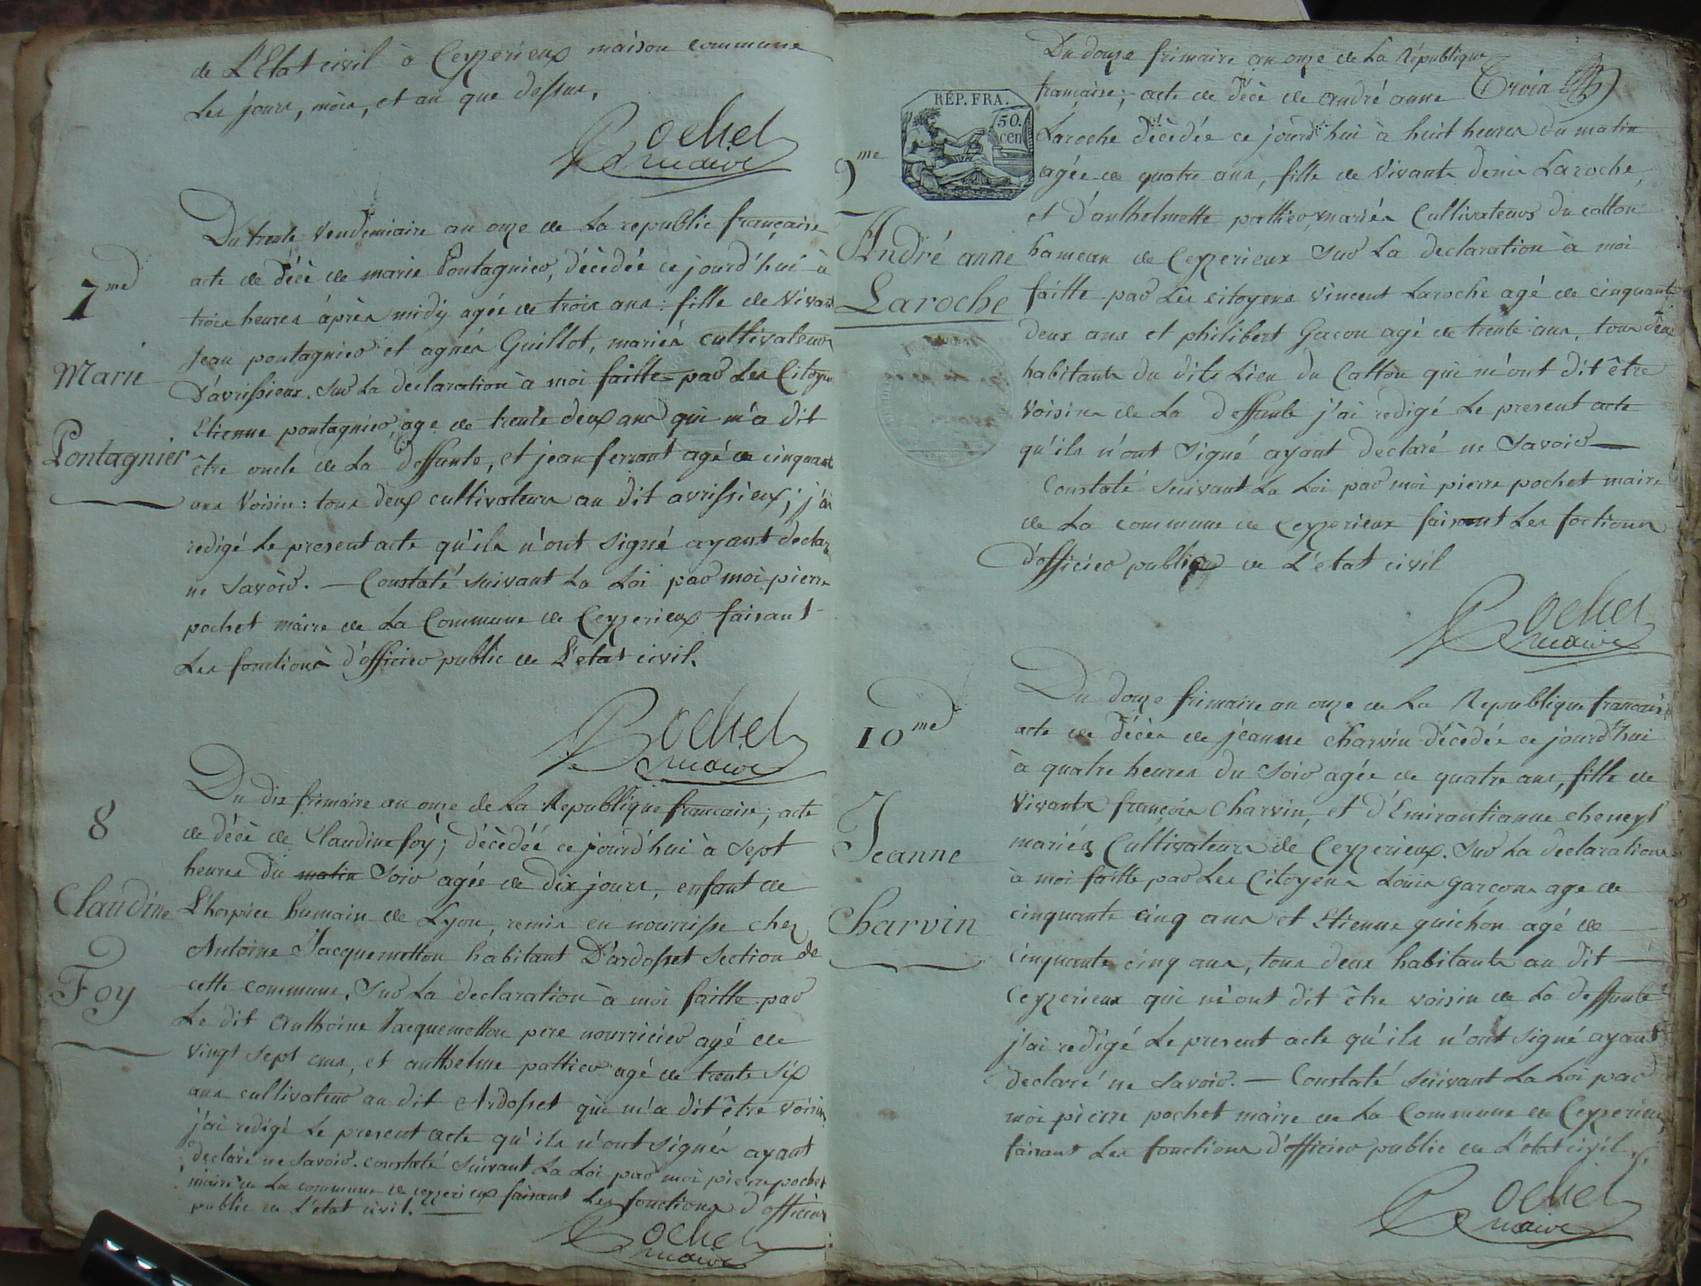 de L'Etat civil à Ceyzerieux maison commune
Les jours, mois, et an que dessus.
Pochet
maire
7me
Marie
Pontagnier
Du trente vendemiaire an onze de La republic française
acte de décè de marie Pontagnier, décèdée ce jourd'hui à
trois heures après midy agée de trois ans: fille de Vivans
Jean pontagnier et agnés Guillot, mariés cultivateurs
d'avrissieux. Sur La declaration à moi faitte par Les Citoyens
Etienne pontagnier, age de trente deux ans qui m'a dit
être oncle de La deffunte, et jean ferrant agé de cinquante
ans Voisin: tous deux cultivateurs au dit avrissieux; j'ai
redigé Le present acte qu'ils n'ont signé ayant déclaré
ne savoir. — Constaté suivant La Loi par moi pierre
pochet maire de La Commune de Ceyzerieux faisant
Les fonctions d'officier public de L'etat civil.
Pochet
maire
8
Claudine
Foy
Du dix frimaire an onze de La Republique francaise; acte
de décè de Claudine foy; décèdéé ce jourd'hui à sept
heures du matin soir agée de dix jours, enfant de
L'hospice humain de Lyon, remis en nourrisse chez
Antoine Jacquemetton habitant D'ardosset Section de
cette commune, sur La declaration à moi faitte par
Le dit Anthoine Jacquemetton pere nourricier agé de
vingt sept ans, et anthelme pattier agé de trente six
ans cultivateur au dit Ardosset qui m'a dit être voisin,
j'ai redigé Le present acte qu'ils n'ont signés ayant
declaré ne savoir. constaté suivant La Loi par moi pierre pochet
maire de La commune de ceyzerieux faisant Les fonctions d'officier
public de L'etat civil.
Pochet
maire
RÉP. FRA.
50.
cen
9me
André anne
Laroche
Du douze frimaire an onze de La République
française; acte de décè de andré anne
Laroche décèdée ce jourd'hui à huit heures du matin
agée de quatre ans, fille de Vivants denis Laroche,
et d'anthelmette pattier, mariés Cultivateurs du catton
hameau de Ceyzerieux Sur La declaration à moi
faitte par Les citoyens Vincent Laroche agé de cinquante
deux ans et philibert Gacon agé de trente ans, tous deux
habitants du dits Lieu du Catton qui m'ont dit être
Voisins de La deffunte j'ai redigé Le present acte
qu'ils n'ont Signé ayant declaré ne savoir —
Constaté suivant La Loi par moi pierre pochet maire
de La commune de Ceyzerieux faisant Les foctions
d'officier public de L'etat civil
Pochet
maire
10me
Jeanne
Charvin
Du douze frimaire an onze de La Republique francaise
acte de décès de jéanne Charvin décèdée ce jourd'hui
à quatre heures du soir agée de quatre ans, fille de
Vivants françois Charvin, et d'Emirantianne cheneyl
mariés Cultivateurs de Ceyzerieux. Sur La declarations
à moi faitte par Les Citoyens Louis garcons age de
cinquante cinq ans et Etienne guichon agé de
cinquante cinq ans, tous deux habitants au dit —
Ceyzerieux qui m'ont dit être voisin de La deffunte
j'ai redigé Le present acte qu'ils n'ont signé ayant
declaré ne savoir. — Constaté suivant La Loi par
moi pierre pochet maire de La Commune de Ceyzerieux,
faisant Les fonctions d'officier public de L'etat civil.
Pochet
maire